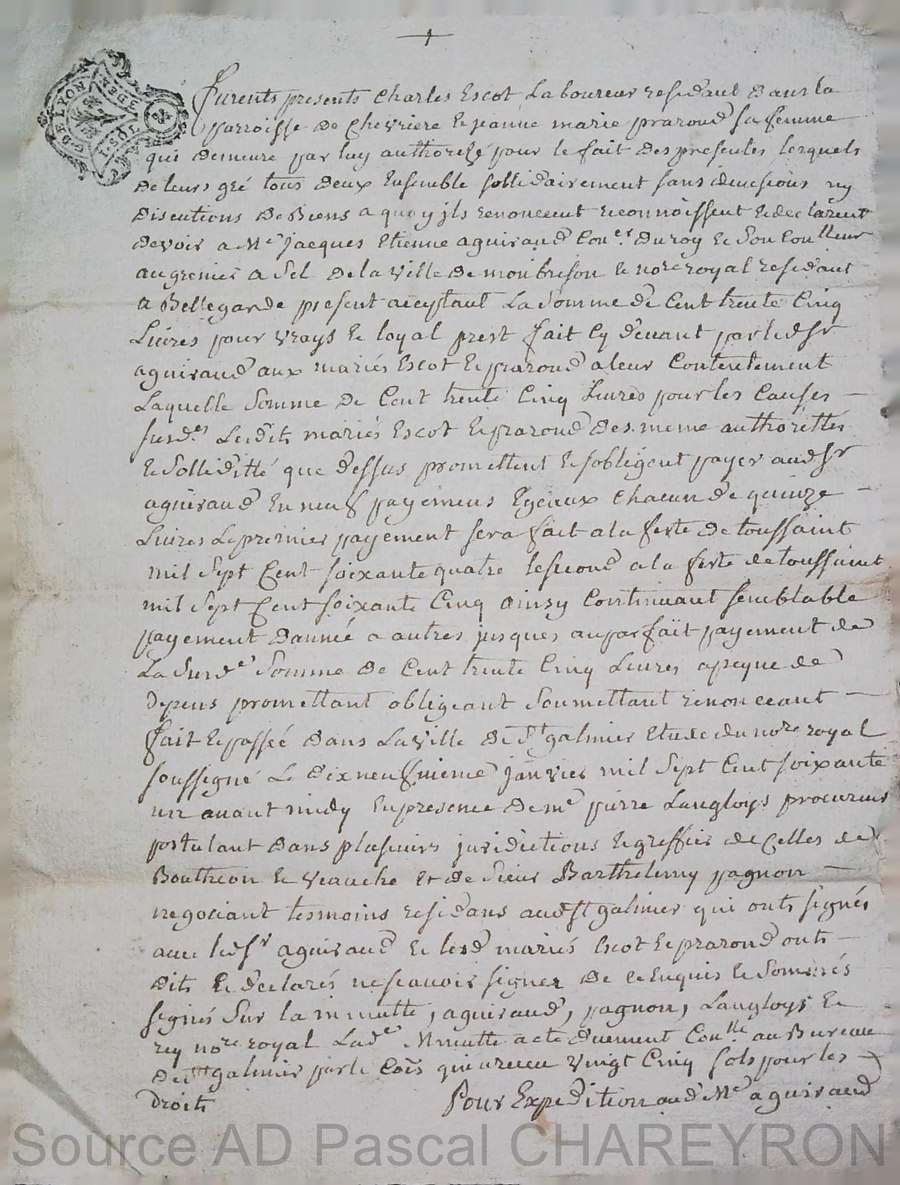 furents presents Charles Escot Laboureur residant dans la
parroisse de Chevriere & jeanne marie prazond sa femme
qui demeure par luy authorizé pour le fait des presentes lesquels
de leurs gré tous deux Ensemble sollidairement sans divisions ny
discutions de Biens a quoy jls renoncent reconnoissent & declarent
devoir a Me jacques Etienne aguiraud Coner du roy & son Conlleur
au grenier a sel de la ville de monbrison & nore royal residant
a Bellegarde present acceptant La somme de Cent trente Cinq
Livres pour vrays & loyal prest fait cy devant par led sr
aguiraud aux mariés Escot & prazond a leur Contentement
Laquelle somme de Cent trente Cinq Livres pour les Causes
susdes Lesdits mariés Escot & prazond des meme authorittés
& solliditté que dessus promettent & sobligent payer aud sr
aguiraud En neuf payemens Egeaux chacun de quinze
Livres Le premier payement sera fait a la feste de toussaint
mil sept Cent soixante quatre le second a la feste de toussaint
mil sept Cent soixante Cinq ainsy Continuant semblable
payement dannée a autres jusques au parfait payement de
La susde somme de Cent trente Cinq Livres a peyne de
depens promettant obligeant soumettant renonceant
fait & passée dans La ville de St galmier Etude du nore royal
soussigné Le dixneufvieme janvier mil sept Cent soixante
un avant midy En presence de me pierre Langloys procureur
postulant dans plusieurs juridictions & greffier de Celles de
Boutheon & veauche et de sieur Barthelemy pagnon
negociant tesmoins residans aud St galmier qui onts signés
avec led sr aguiraud & lesd mariés Escot & prazond onts
dits & declarés ne scavoir signer de ce Enquis & sommés
signés sur la minutte, aguiraud, pagnon, Langloys &
rey nore royal Lade Minutte acte duement Conlle au Bureau
de St galmier par le Cois qui a receu vingt Cinq sols pour les
droits
Pour Expedition aud Me aguiraud
Source AD Pascal CHAREYRON